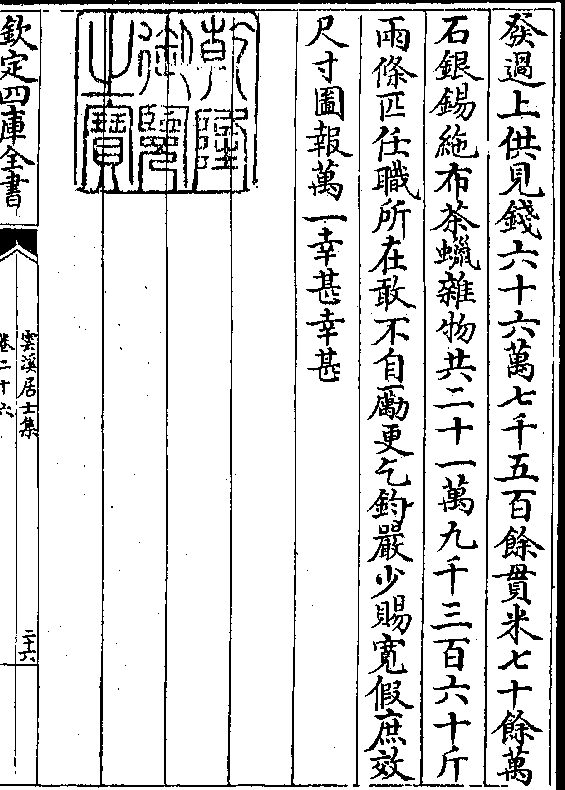 發過上供見錢六十六萬七千五百餘貫米七十餘萬
石銀錫絁布茶蠟雜物共二十一萬九千三百六十斤
兩條匹任職所在敢不自勵更乞鈞嚴少賜寛假庶效
尺寸圖報萬一幸甚幸甚
乾隆御覽之寶
欽定四庫全書
雲溪居士集
卷二十六
二十六